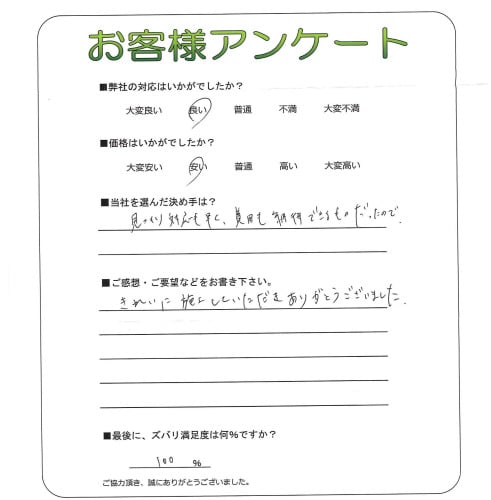 お客様アンケート
■弊社の対応はいかがでしたか?
大変良い 良い 普通 不満 大変不満
■価格はいかがでしたか?
大変安い 安い 普通 高い 大変高い
■当社を選んだ決め手は?
見つもり対応も早く、費用も納得できるものだったので
■ご感想・ご要望などをお書き下さい。
きれいに施工していただきありがとうございました
■最後に、ズバリ満足度は何%ですか?
100 %
ご協力頂き、誠にありがとうございました。